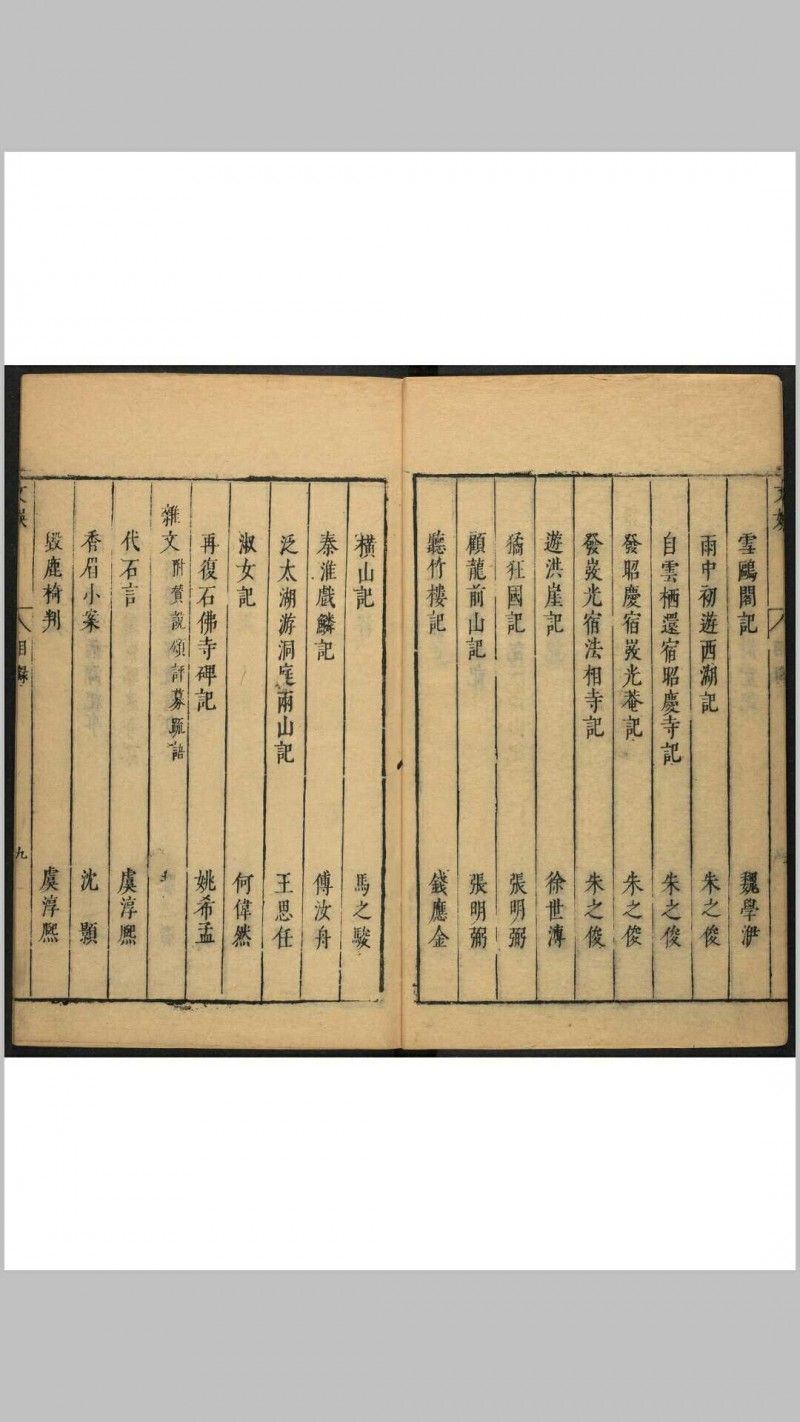 雪鷗閣記 魏學洢
雨中初遊西湖記 朱之俊
自雲栖還宿昭慶寺記 朱之俊
發昭慶宿㟁光菴記 朱之俊
發㟁光宿法相寺記 朱之俊
遊洪崖記 徐世溥
猲狂國記 張明弼
顧龍前山記 張明弼
聽竹樓記 錢應金
橫山記 馬之駿
秦淮戲麟記 傅汝舟
泛太湖游洞庭兩山記 王思任
淑女記 何偉然
再復石佛寺碑記 姚希孟
雜文 附贊說頌評募疏語
代石言 虞淳熙
香眉小案 沈顥
毀鹿椅判 虞淳熙
文娛 目錄 九